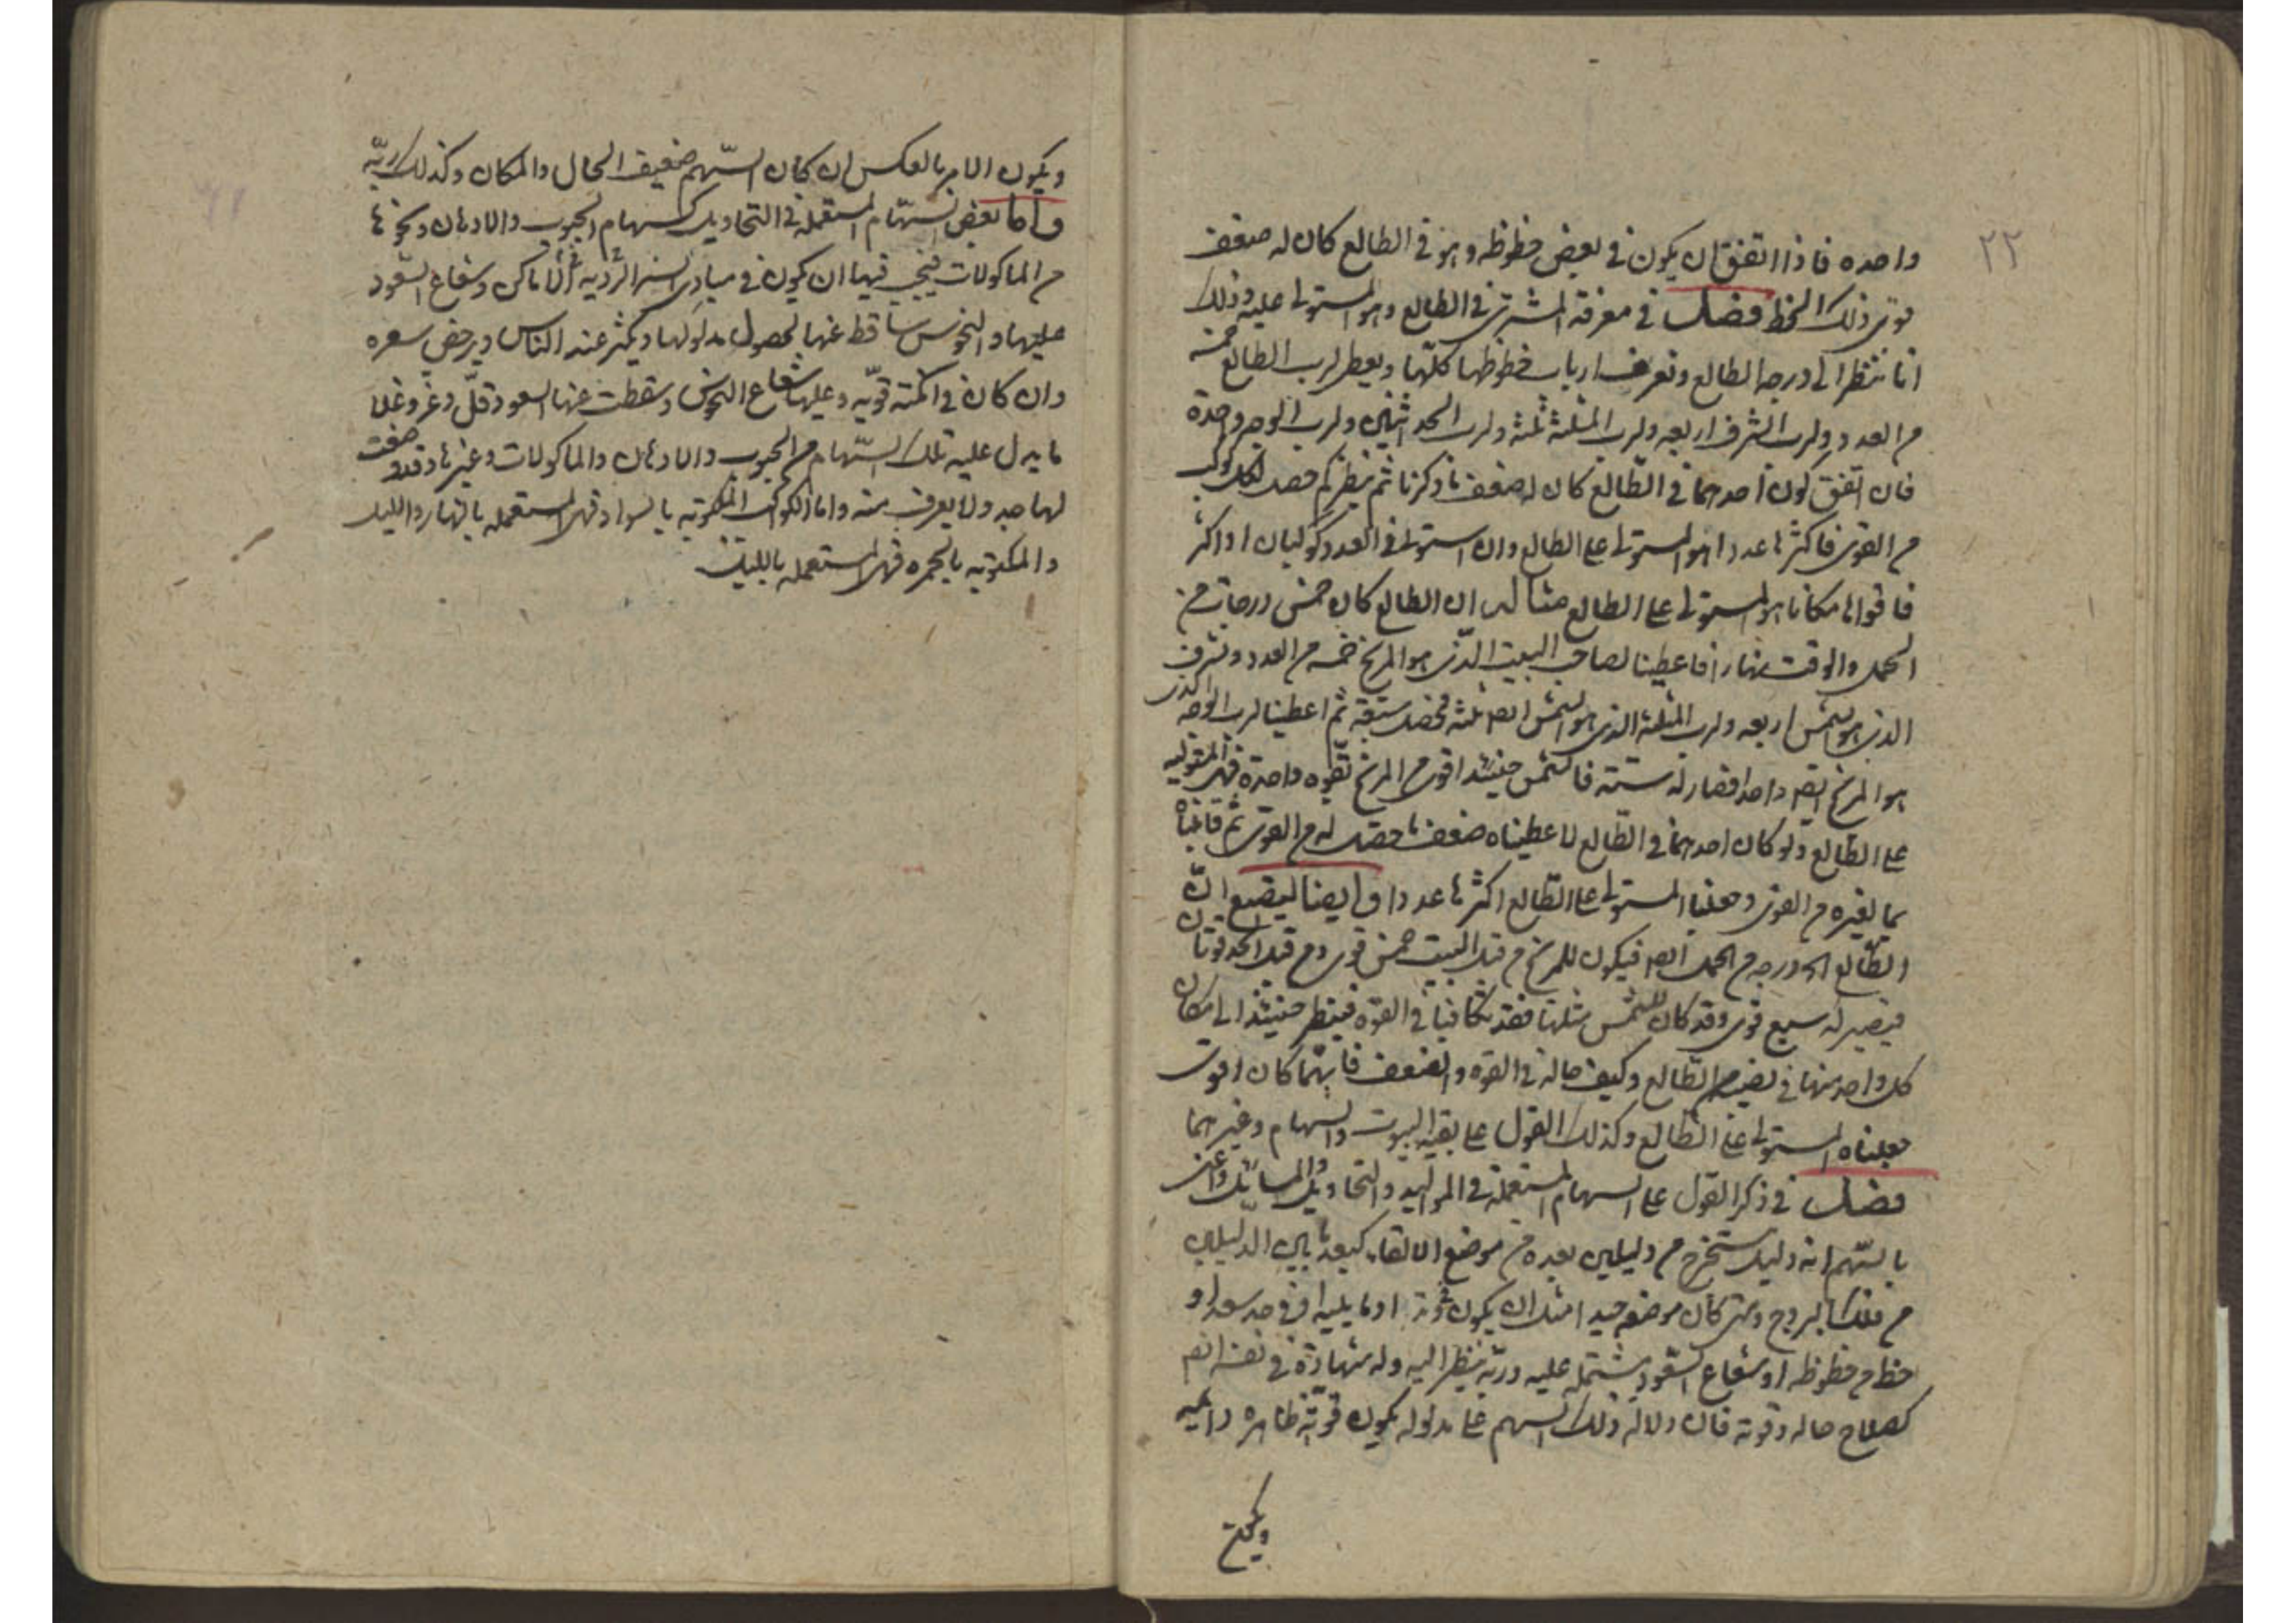 ٢٢
واحده فاذا اتفق ان يكون في بعض حظوظه وهو في الطالع كان له ضعف
قوى ذلك الحظ فصل في معرفة المستولى على الطالع وهو المستولى عليه وذلك
انا ننظر الى درجه الطالع ونعرف ارباب حظوظها كلّها ويعطى لرب الطالع خمسه
من العدد ولرب الشرف اربعه ولرب المثلثه ثلثه ولرب الحد اثنين ولرب الوجه واحدة
فان اتفق كون احدهما في الطالع كان له ضعف ما ذكرنا ثم ينظر كم حصل لكل كوكب
من القوى فاكثرها عددا هو المستولى على الطالع وان استوى في العدد كوكبان او اكثر
فاقواها مكانا هو المستولى على الطالع مثاله ان الطالع كان خمس درجات من
الحمل والوقت نهارا فاعطينا لصاحب البيت الذى هو المريخ خمسه من العدد ولشرف
الذى هو الشمس اربعه ولرب المثلثه الذى هو الشمس ايضا ثلثه فحصل سبعة ثم اعطينا لرب الوجه الذى
هو المريخ ايضا واحدا فصار له ستّة فالشمس حينئذ اقوى من المريخ بقوه واحدة فهى المستوليه
على الطالع ولو كان احدهما في الطالع لاعطيناه ضعف ما حصل له من القوى ثم قابلناه
بما لغيره من القوى وجعلنا المستولى على الطالع اكثرها عددا وايضا ليضع انّ
الطالع درجه من الحمل ايضا فيكون للمريخ من قبل البيت خمس قوى ومن قبل الحد قوتان
فيصير له سبع قوى وقد كان للشمس مثلها فقد تكافيا في القوّه فينظر حينئذ الى مكان
كل واحد منهما في نصيب الطالع وكيف حاله في القوه والضعف فايهما كان اقوى
جعلناه المستولى على الطالع وكذلك القول على بقيه البيوت والسهام وغيرهما
فصل في ذكر القول على السهام المستعملة في المواليد والتحاويل والمسائل واعنى
بالسّهم انه دليل مستخرج من دليلين بعده من موضع الالقاء كبعد ما بين الدليلين
من فلك البروج ومتى كان موضعه جيدا مثل ان يكون في وتد او ما يليه او في حد سعد او
حظ من حظوظه او شعاع السعود يشتمل عليه وربّه ينظر اليه وله شهادة في نفسه ايضا
كصلاح حاله وقوته فان دلالة ذلك السهم على مدلوله يكون قويّه ظاهره دائمه
ويكون
ويكون الامر بالعكس ان كان السّهم ضعيف الحال والمكان وكذلك ربّه
واما بعض السّهام المستعمله في التحاويل كسهام الحبوب والادهان ونحوها
من الماكولات فينبغى فيها ان يكون في مبادى السنه الرديه الاماكن وشعاع السعود
عليها والنحوس ساقط عنها لحصول مدلولها ويكثر عند الناس ويرخص سعره
وان كان في امكنه قويّه وعليها شعاع النحوس وسقطت عنها السعود قلّ وعز وغلا
ما يدل عليه تلك السّهام من الحبوب والادهان والماكولات وغيرها وقد وضعت
لها جدولا يعرف منه واما الكواكب المكتوبه بالسواد فهى المستعمله بالنهار والليل
والمكتوبه بالحمره فهى المستعمله بالليل